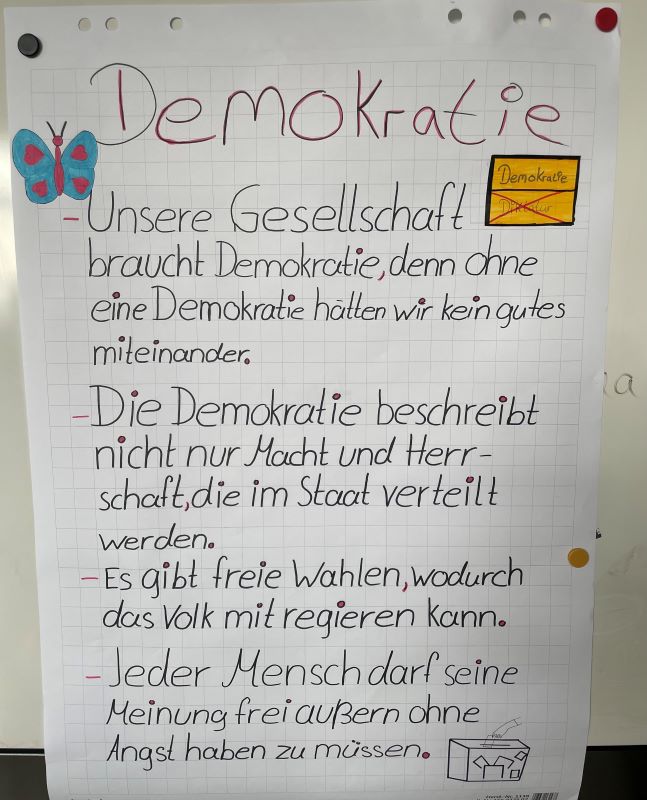 Demokratie
Demokratie
Diktatur
- Unsere Gesellschaft
braucht Demokratie, denn ohne
eine Demokratie hätten wir kein gutes
miteinander.
- Die Demokratie beschreibt
nicht nur Macht und Herr-
schaft, die im Staat verteilt
werden.
- Es gibt freie Wahlen, wodurch
das Volk mit regieren kann.
- Jeder Mensch darf seine
Meinung frei außern ohne
Angst haben zu müssen.